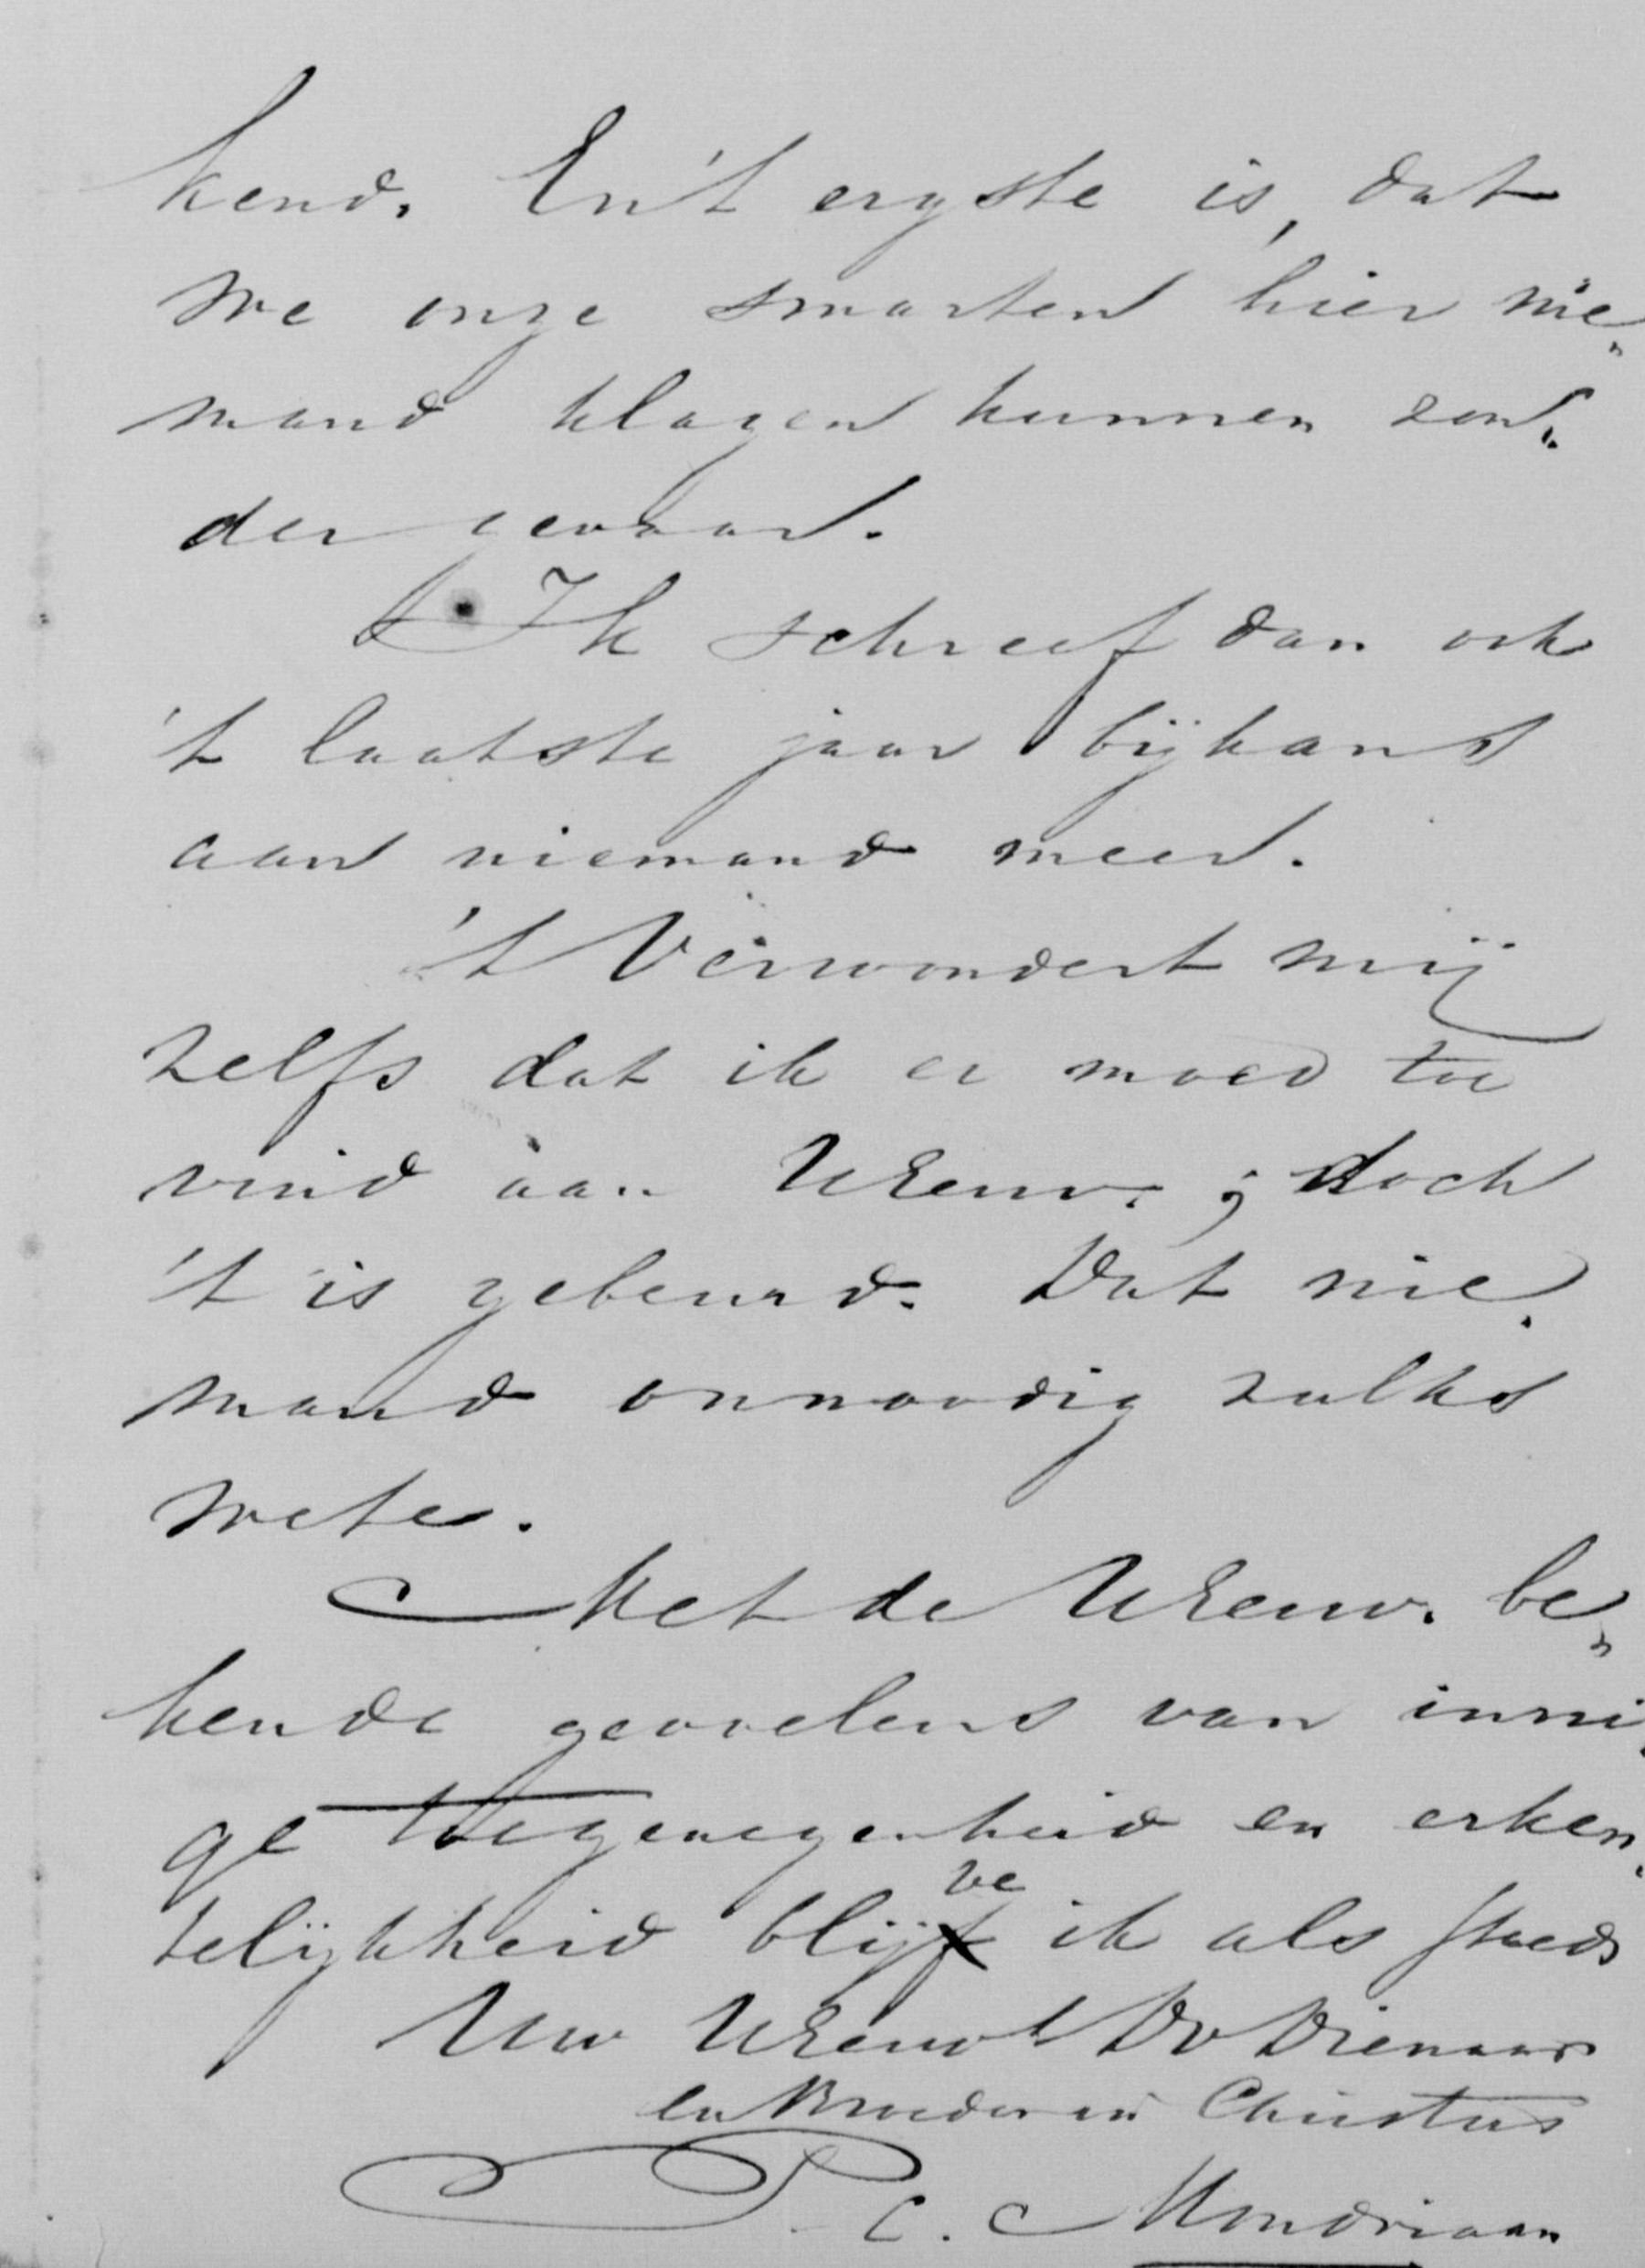 kend. En 't ergste is, dat
we onze smarten hier nie„
mand klagen kunnen zon„
der gevaar.
Ik schreef dan ook
't laatste jaar bijkans
aan niemand meer.
't Verwondert mij
zelfs dat ik er moed toe
vind aan UEerw.; doch
't is gebeurd. Dat nie„
mand onnoodig zulks
wete.
Met de UEerw. be„
kende gevoelens van inni„
ge toegenegenheid en erken„
telijkheid blijve ik als steeds
Uw UEerw Dv Dienaar
en Broeder in Christus
P. C. Mondriaan